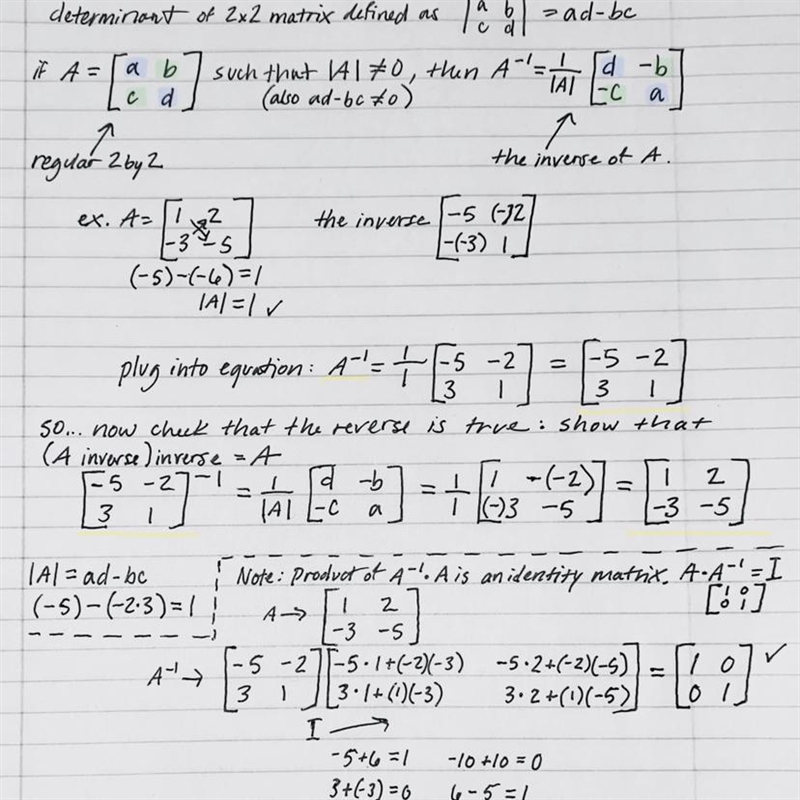 determinant of 2x2 matrix defined as |a b| = ad-bc
|c d|
if A = [a b] such that |A| ≠ 0, then A⁻¹ = 1/|A| [d -b]
[c d] (also ad-bc ≠ 0) [-c a]
regular 2 by 2 the inverse of A.
ex. A = [1 2] the inverse [-5 (-)2]
[-3 -5] [-(-3) 1]
(-5)-(-6)=1
|A|=1 ✓
plug into equation: A⁻¹ = 1/1 [-5 -2] = [-5 -2]
[3 1] [3 1]
so... now check that the reverse is true: show that
(A inverse)inverse = A
[-5 -2]⁻¹ = 1/|A| [d -b] = 1/1 [1 -(-2)] = [1 2]
[3 1] [-c a] [(-)3 -5] [-3 -5]
|A| = ad-bc
(-5)-(-2·3)=1
Note: Product of A⁻¹·A is an identity matrix. A·A⁻¹ = I
[1 0]
[0 1]
A → [1 2]
[-3 -5]
A⁻¹ → [-5 -2] [-5·1+(-2)(-3) -5·2+(-2)(-5)] = [1 0] ✓
[3 1] [3·1+(1)(-3) 3·2+(1)(-5)] [0 1]
I →
-5+6=1 -10+10=0
3+(-3)=0 6-5=1